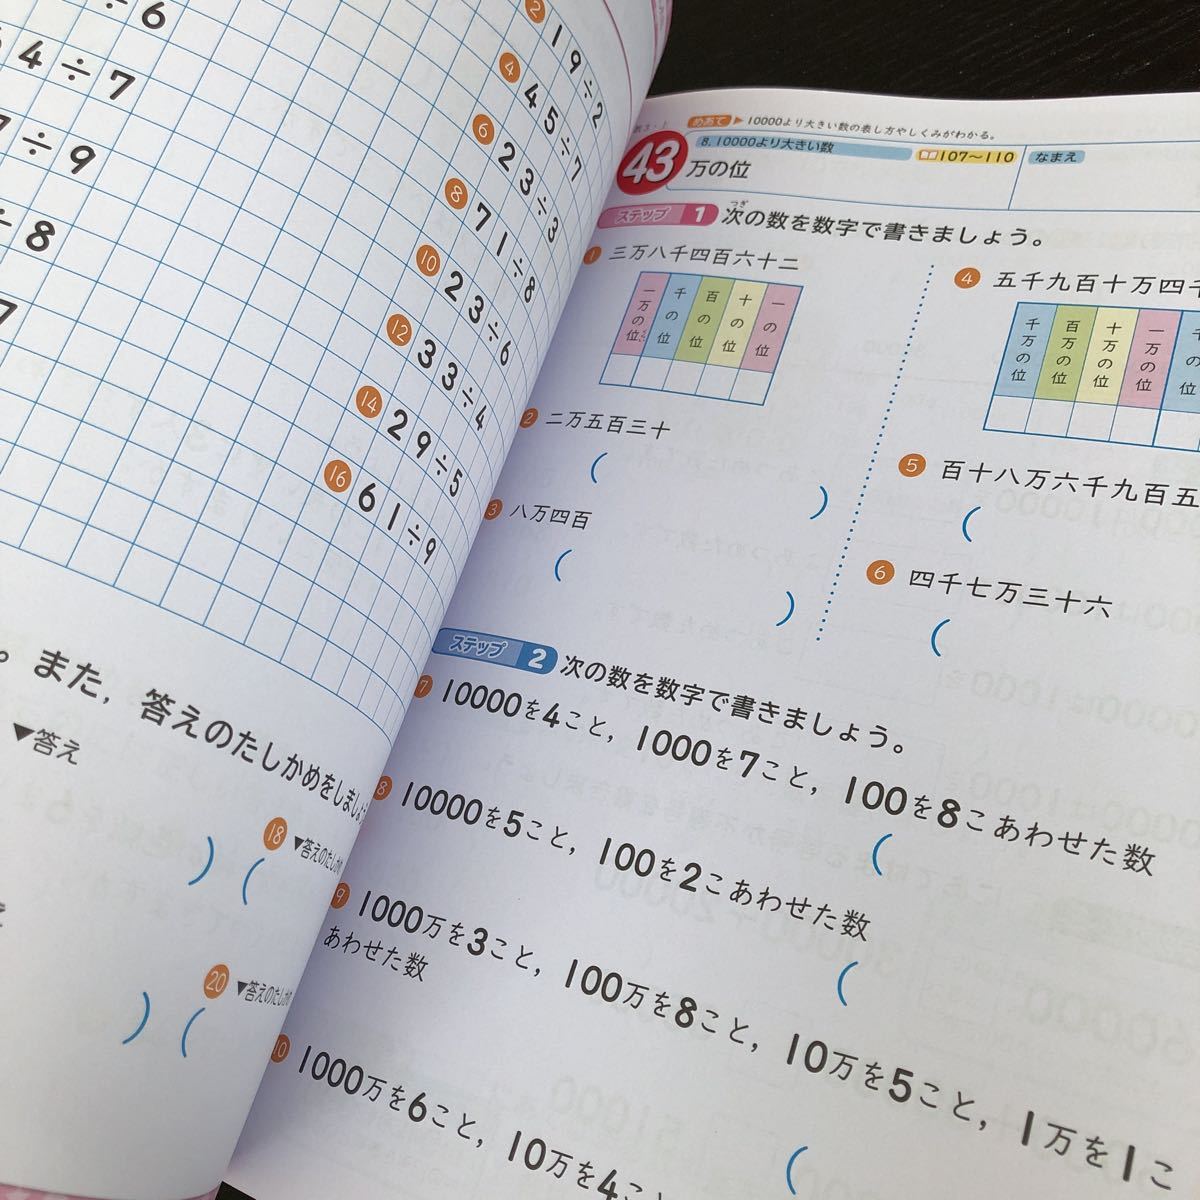 ÷6
2 19÷2
4÷7
4 45÷7
÷9
6 23÷3
÷8
8 71÷8
7
10 23÷6
12 33÷4
14 29÷5
16 61÷9
。また，答えのたしかめをしましょ
▼答え
18 ▼答えのたしかめ
20 ▼答えのたしかめ
めあて ▶10000より大きい数の表し方やしくみがわかる。
43
8.10000より大きい数
107〜110
なまえ
万の位
ステップ 1 次の数を数字で書きましょう。
つぎ
1 三万八千四百六十二
一万の位 千の位 百の位 十の位 一の位
2 二万五百三十
( )
3 八万四百
( )
4 五千九百十万四千
千万の位 百万の位 十万の位 一万の位
5 百十八万六千九百五
(
6 四千七万三十六
(
ステップ 2 次の数を数字で書きましょう。
7 10000を4こと，1000を7こと，100を8こあわせた数
(
8 10000を5こと，100を2こあわせた数
(
9 1000万を3こと，100万を8こと，10万を5こと，1万を1こ
あわせた数
(
10 1000万を6こと，10万を4こ